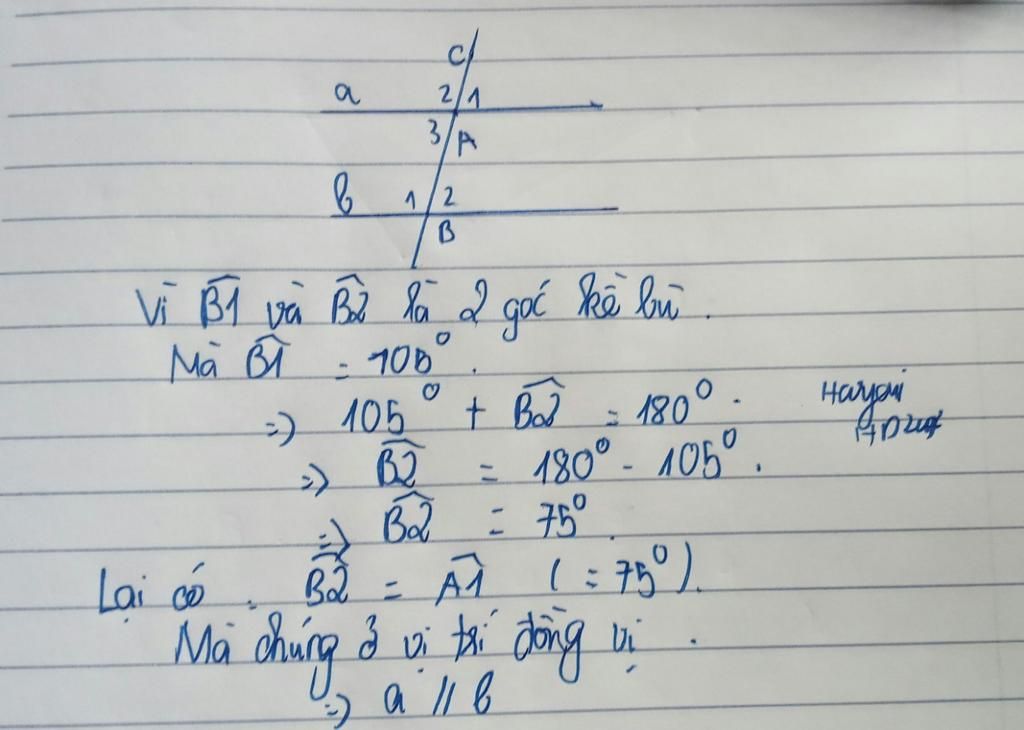 C
a 2 1
3 A
b 1 2
B
Vì B̂1 và B̂2 là 2 góc kề bù.
Mà B̂1 = 105°.
=> 105° + B̂2 = 180°.
=> B̂2 = 180° - 105°.
=> B̂2 = 75°.
Lại có. B̂2 = Â1 (= 75°).
Mà chúng ở vị trí đồng vị.
=> a // b